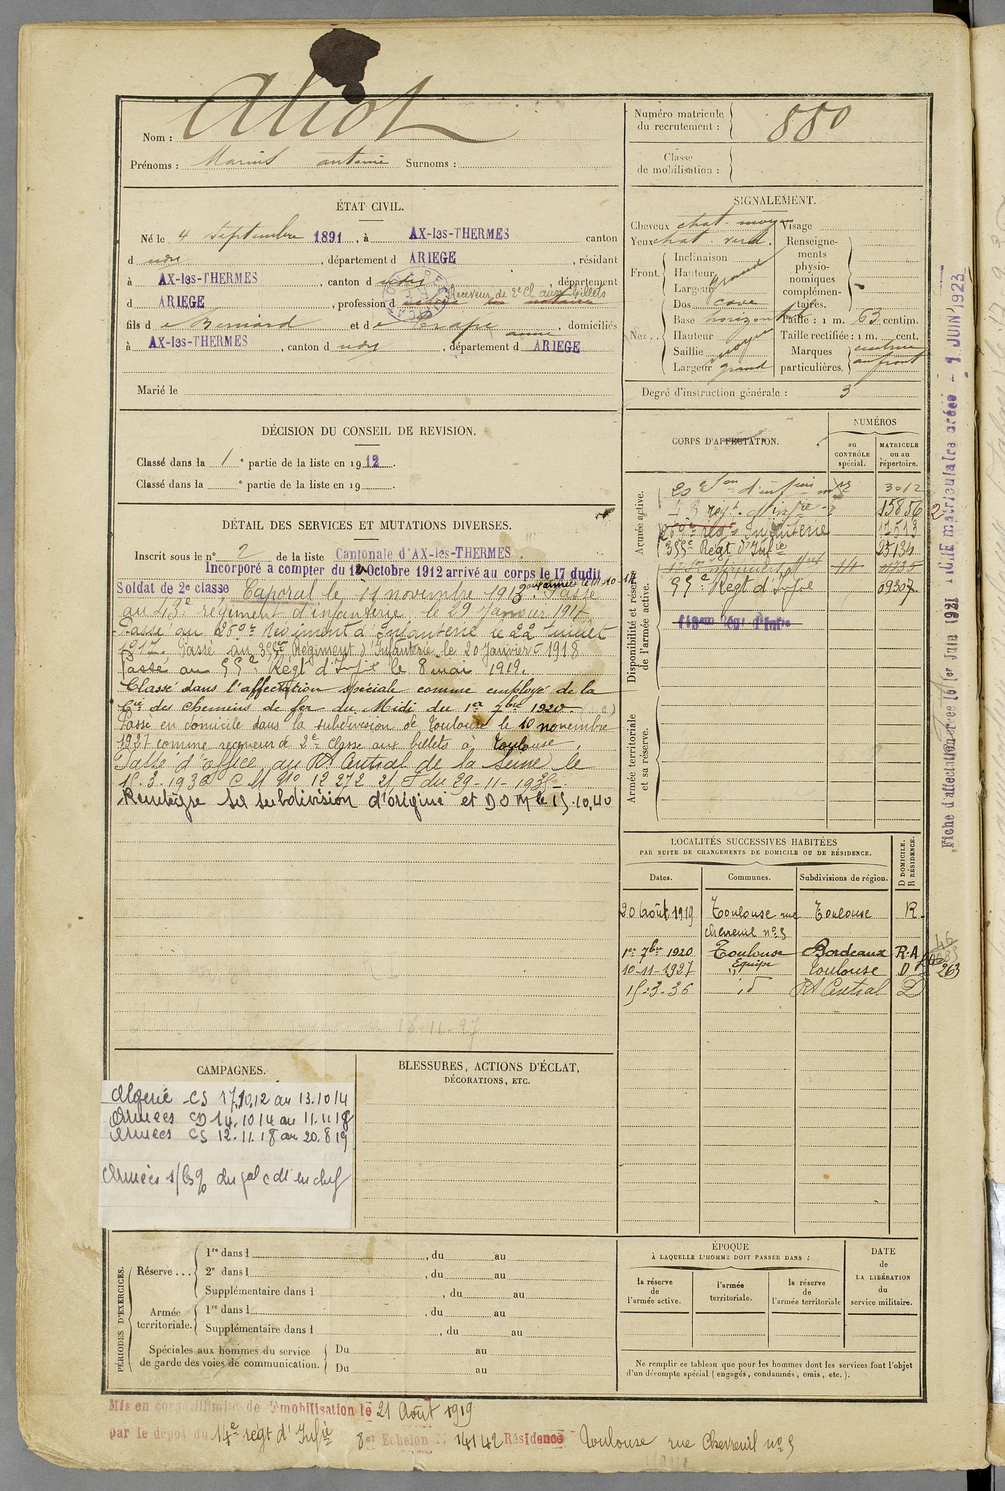 Aliot
Nom :
Prénoms : Marius antoine Surnoms :
Numéro matricule du recrutement : 880
Classe de mobilisation :
ÉTAT CIVIL.
Né le 4 septembre 1891, à AX-les-THERMES canton
d udit, département d ARIEGE, résidant
à AX-les-THERMES canton d udit, département
d ARIEGE, profession d Receveur de 2e Cl. aux billets
fils d e Bernard et d e anne, domiciliés
à AX-les-THERMES, canton d udit, département d ARIEGE
Marié le
SIGNALEMENT.
Cheveux chat. moyen Visage
Yeux chat. verd. Renseignements physionomiques complémentaires.
Front. Inclinaison
Hauteur
Largeur grand
Nez... Dos cave
Base horizontal Taille : 1 m. 63 centim.
Hauteur moyen Taille rectifiée : 1 m. cent.
Saillie Marques particulières. au front
Largeur grand
Degré d'instruction générale : 3
DÉCISION DU CONSEIL DE REVISION.
Classé dans la 1e partie de la liste en 1912.
Classé dans la e partie de la liste en 19 .
DÉTAIL DES SERVICES ET MUTATIONS DIVERSES.
Inscrit sous le n° 2 de la liste Cantonale d'AX-les-THERMES.
Incorporé à compter du Octobre 1912 arrivé au corps le 17 dudit
Soldat de 2e classe Caporal le 11 novembre 1913. Passé
au 43e régiment d'infanterie le 29 Janvier 1914
Passé au 259e Régiment d'Infanterie le 22 Juillet
1917. Passé au 355e Régiment d'Infanterie le 20 Janvier 1918
Passé au 99e Régt d'Infie le 8 mai 1919.
Classé dans l'affectation spéciale comme employé de la
Cie des Chemins de fer du Midi du 1er 7bre 1920.
Passé en domicile dans la subdivision de Toulouse le 10 novembre
1927 comme receveur de 2e classe aux billets à Toulouse.
Passé d'office au Rt Central de la Seine le
15.3.1936 C.M. No 12 272 du 29-11-1935
Réintègre sa subdivision d'origine et DOM le 15.10.40
CORPS D'AFFECTATION.
NUMÉROS
au CONTRÔLE spécial.
MATRICULE ou au répertoire.
Armée active.
3012
43 regt. d'infre 15856
259e reg. Infanterie 17513
355e Régt d'Infie 25134
Disponibilité et réserve de l'armée active.
99e Régt d'Infie 09307
143me Régt d'Infie
Armée territoriale et sa réserve.
Fiche d'affectation créée le 1er Juin 1921
FICHE matriculaire créée - 1 JUIN 1923
LOCALITÉS SUCCESSIVES HABITÉES
PAR SUITE DE CHANGEMENTS DE DOMICILE OU DE RÉSIDENCE.
D DOMICILE. R RÉSIDENCE.
Dates. Communes. Subdivisions de région.
20 Août 1919 Toulouse rue Chevreuil no 5 Toulouse R.
1er 7bre 1920 Toulouse Bordeaux R.A
10-11-1927 Toulouse D
15-3-36 id Rt Central D
263
CAMPAGNES.
Algérie CS 17.10.12 au 13.10.14
Armées CD 14.10.14 au 11.11.18
Armées CS 12.11.18 au 20.8.19
Armées du gal cdt en chef
BLESSURES, ACTIONS D'ÉCLAT,
DÉCORATIONS, ETC.
PÉRIODES D'EXERCICES.
Réserve... 1re dans l , du au
2e dans l , du au
Supplémentaire dans l , du au
Armée territoriale. 1re dans l , du au
Supplémentaire dans l , du au
Spéciales aux hommes du service de garde des voies de communication. Du au
Du au
ÉPOQUE
À LAQUELLE L'HOMME DOIT PASSER DANS :
la réserve de l'armée active. l'armée territoriale. la réserve de l'armée territoriale
DATE de LA LIBÉRATION du service militaire.
Ne remplir ce tableau que pour les hommes dont les services font l'objet
d'un décompte spécial (engagés, condamnés, omis, etc.).
Mis en congé illimité de démobilisation le 21 Août 1919
par le dépôt du 14e régt d'Infie 8e Echelon N° 14142 Résidence Toulouse rue Chevreuil no 5